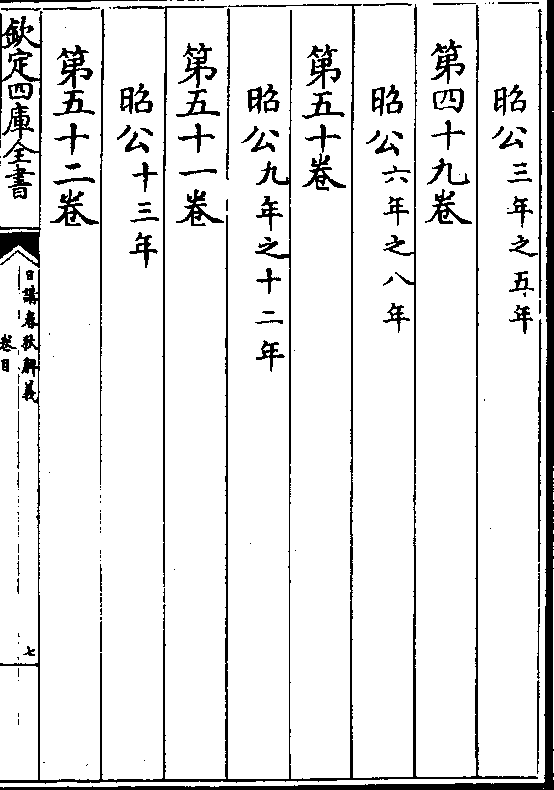 昭公三年之五年
第四十九卷
昭公六年之八年
第五十卷
昭公九年之十二年
第五十一卷
昭公十三年
第五十二卷
欽定四庫全書
日講春秋解義
卷目
七